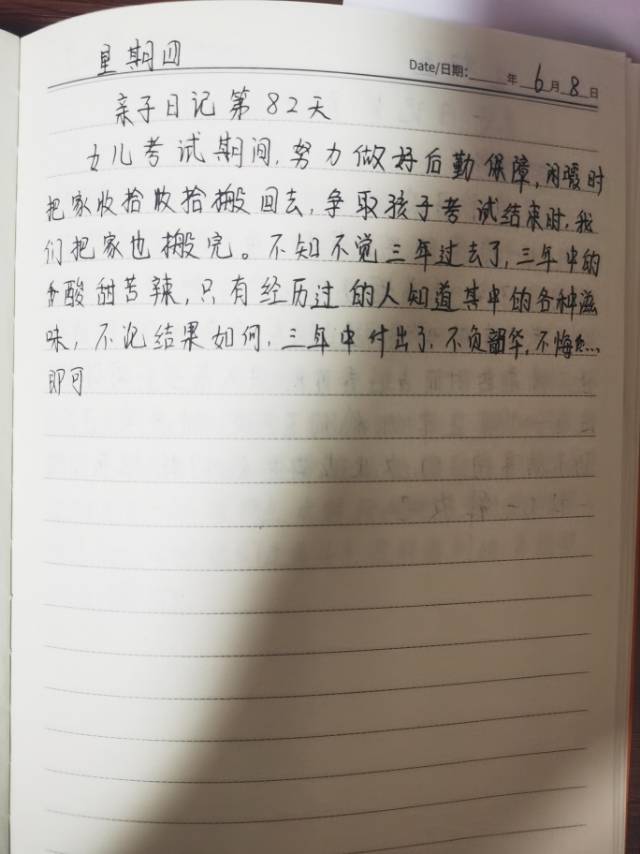 星期四
Date/日期: 年 6月 8日
亲子日记第82天
女儿考试期间,努力做好后勤保障,闲暇时
把家收拾收拾搬回去,争取孩子考试结束时,我
们把家也搬完。不知不觉三年过去了,三年中的
酸甜苦辣,只有经历过的人知道其中的各种滋
味,不论结果如何,三年中付出了,不负韶华,不悔
即可